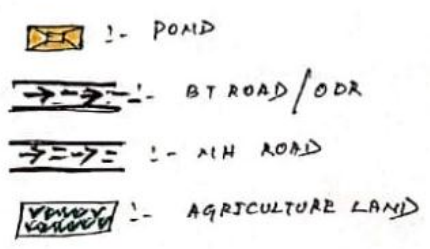 :- POND
:- BT ROAD/ODR
:- NH ROAD
:- AGRICULTURE LAND